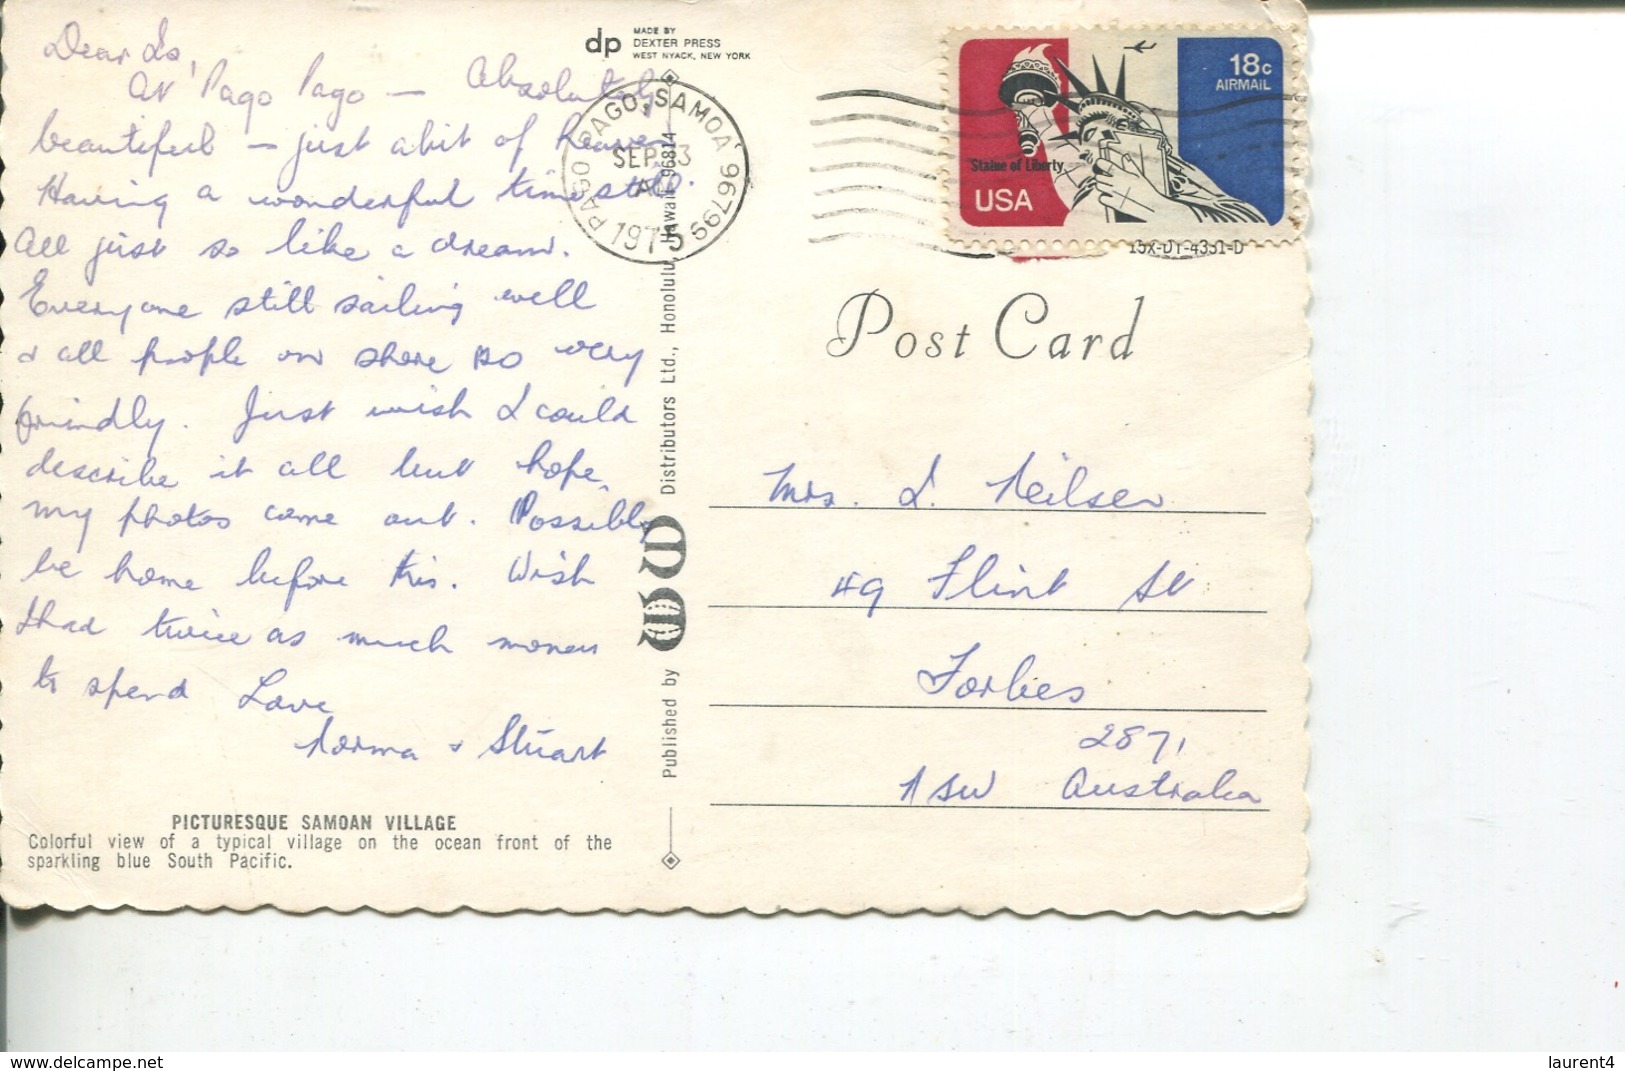 Dear Is,
At Pago Pago — Absolutely
beautiful — just a bit of heaven
Having a wonderful time still.
All just so like a dream.
Everyone still sailing well
& all people on shore so very
friendly. Just wish I could
describe it all but hope
my photos come out. Possibly
be home before this. Wish
I had twice as much money
to spend Love
Norma & Stuart
PICTURESQUE SAMOAN VILLAGE
Colorful view of a typical village on the ocean front of the
sparkling blue South Pacific.
dp MADE BY
DEXTER PRESS
WEST NYACK, NEW YORK
PAGO PAGO, SAMOA 96799
SEP 13
A
1975
Published by Distributors Ltd., Honolulu, Hawaii 96814
18c
AIRMAIL
Statue of Liberty
USA
15X-DT-4351-D
Post Card
Mrs. I. Neilsen
49 Flint St
Forbes
2871
NSW Australia
www.delcampe.net
laurent4